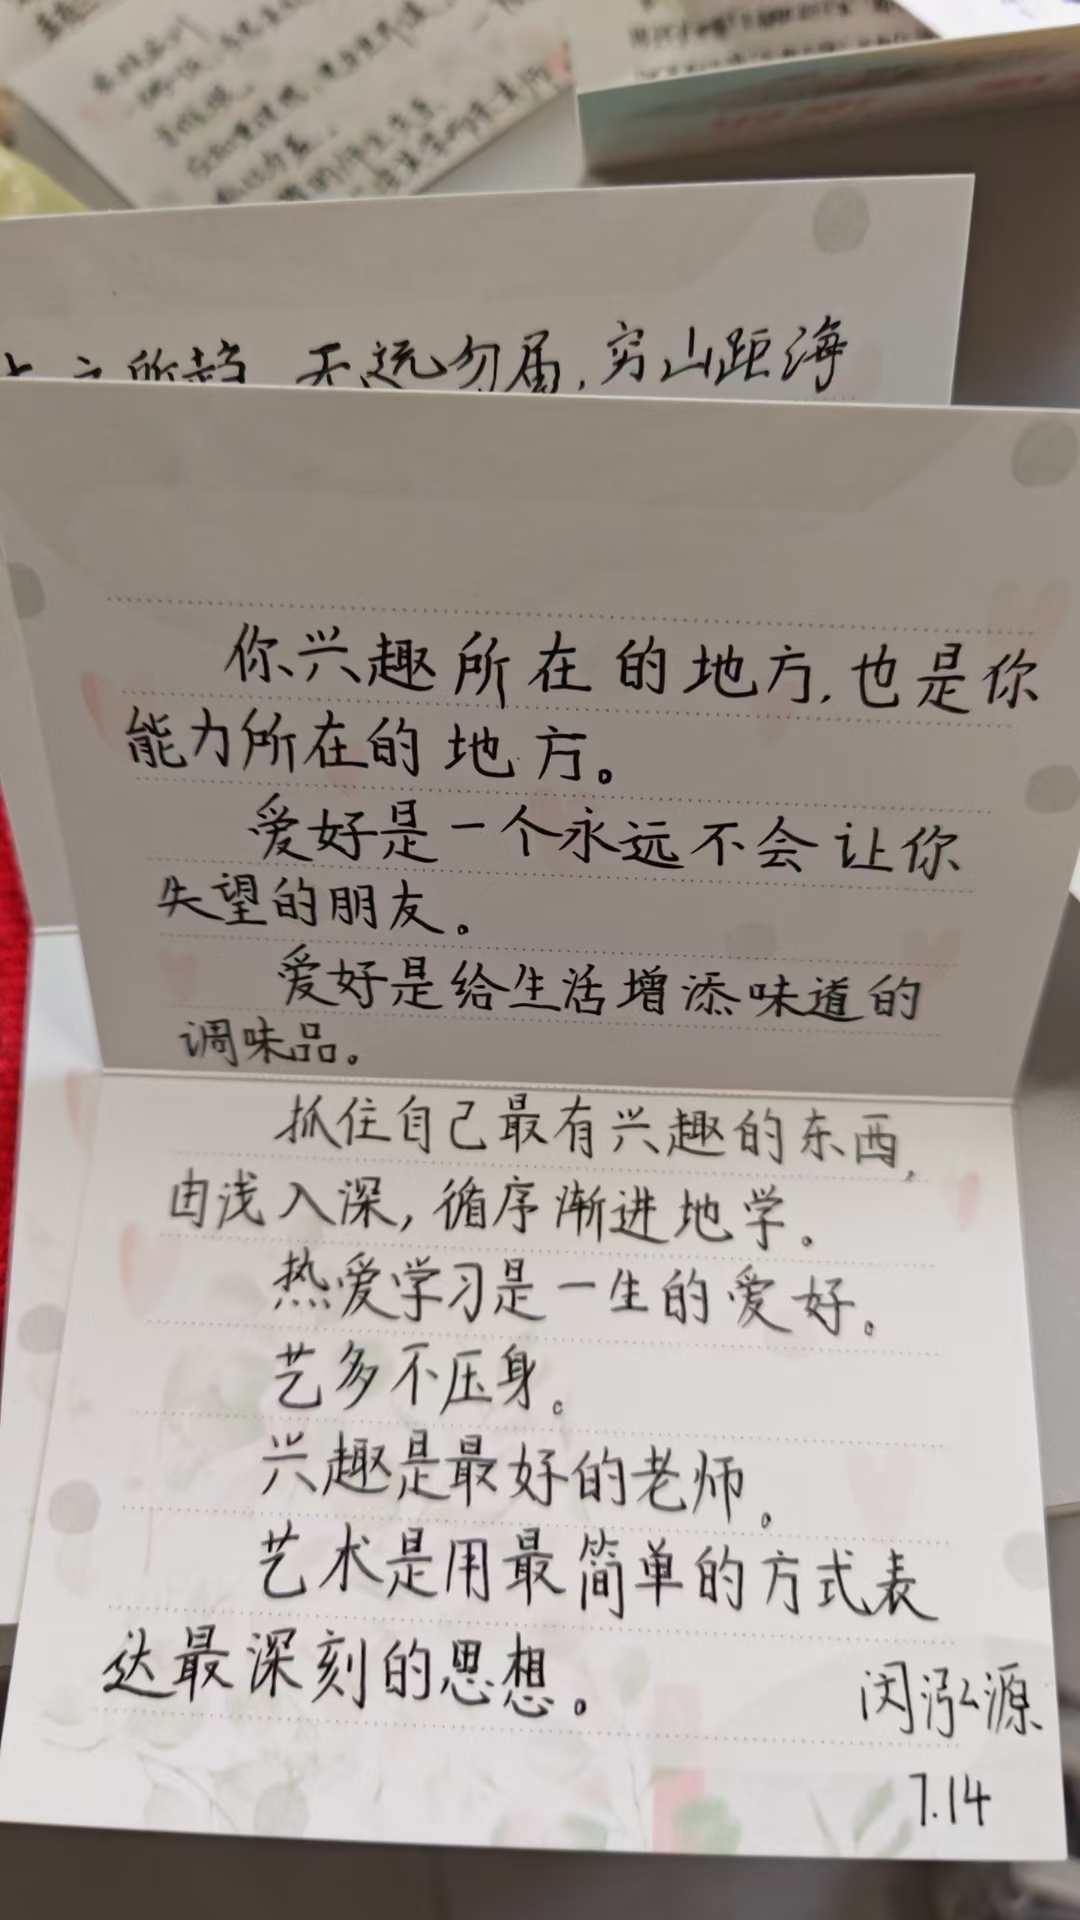 所趋 天远勿届,穷山距海
你兴趣所在的地方,也是你
能力所在的地方。
爱好是一个永远不会让你
失望的朋友。
爱好是给生活增添味道的
调味品。
抓住自己最有兴趣的东西,
由浅入深,循序渐进地学。
热爱学习是一生的爱好。
艺多不压身。
兴趣是最好的老师。
艺术是用最简单的方式表
达最深刻的思想。
闵泓源
7.14